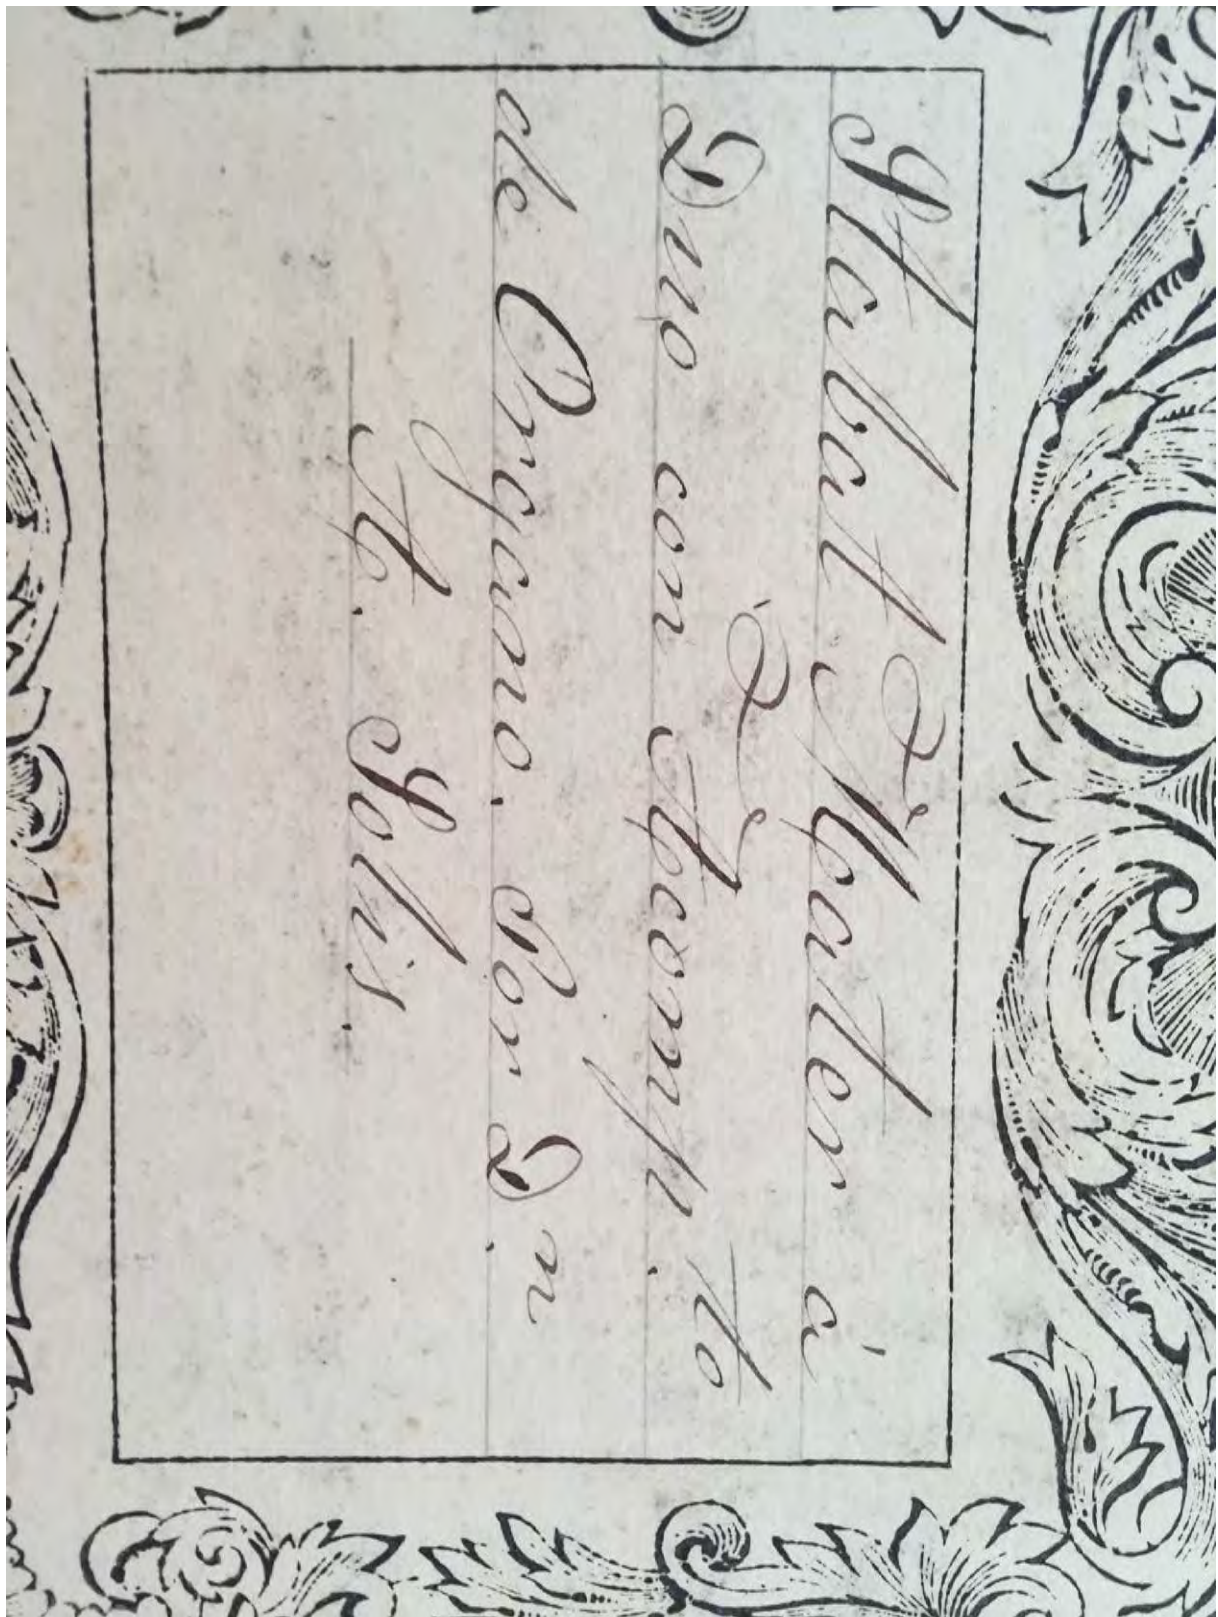 Stabat Mater á
Duo con Acomp.to
de Organo. Por D.n
A. Solis.